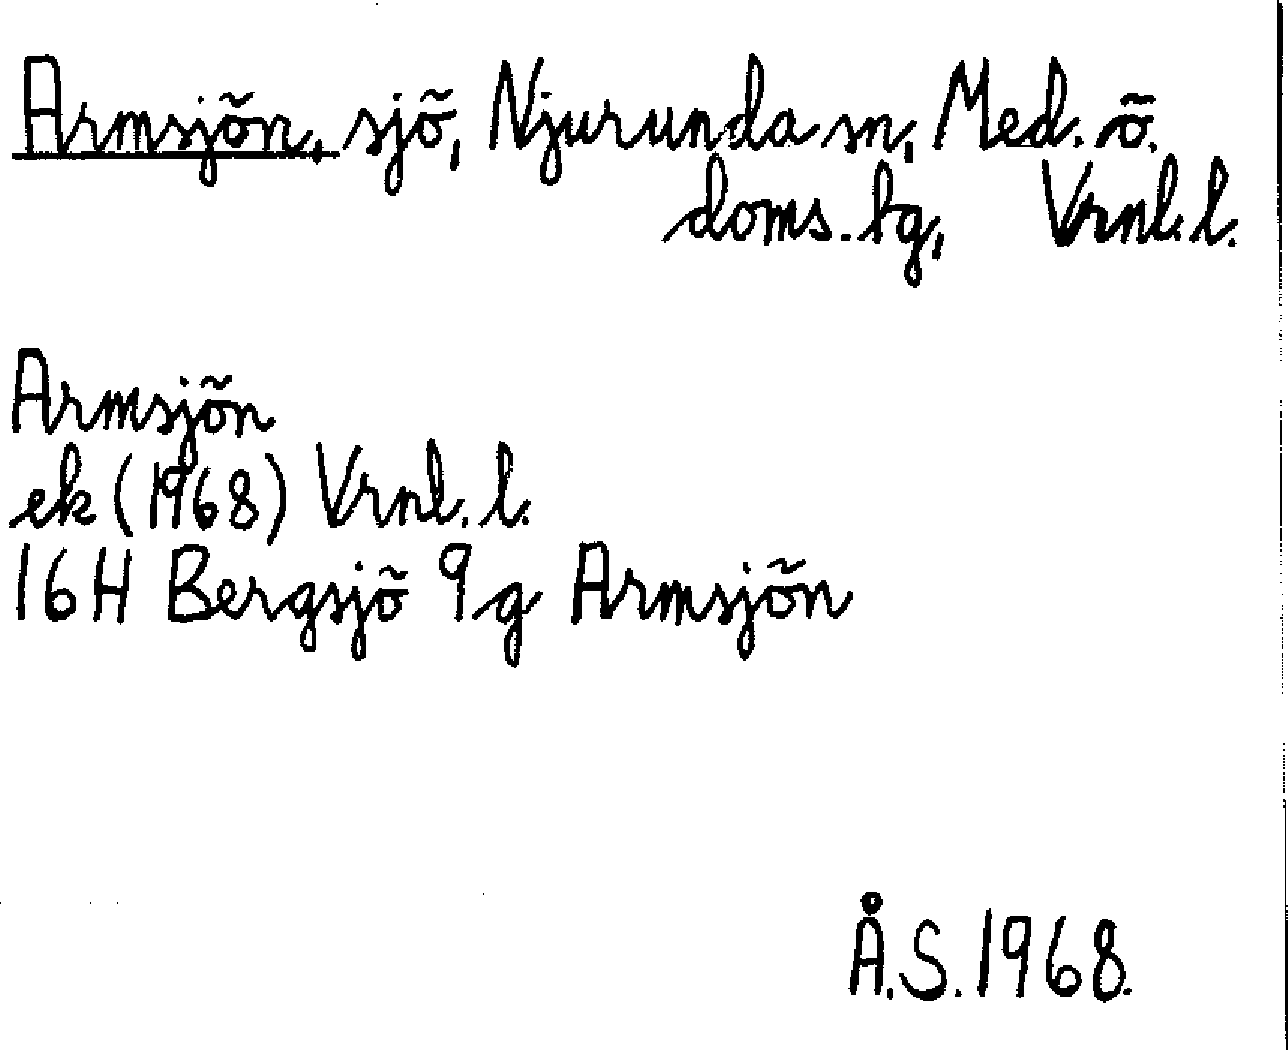 Armsjön, sjö, Njurunda sn, Med. ö.
doms. lg, Vrnl. l.
Armsjön
ek (1968) Vrnl. l.
16H Bergsjö 9g Armsjön
Å.S. 1968.